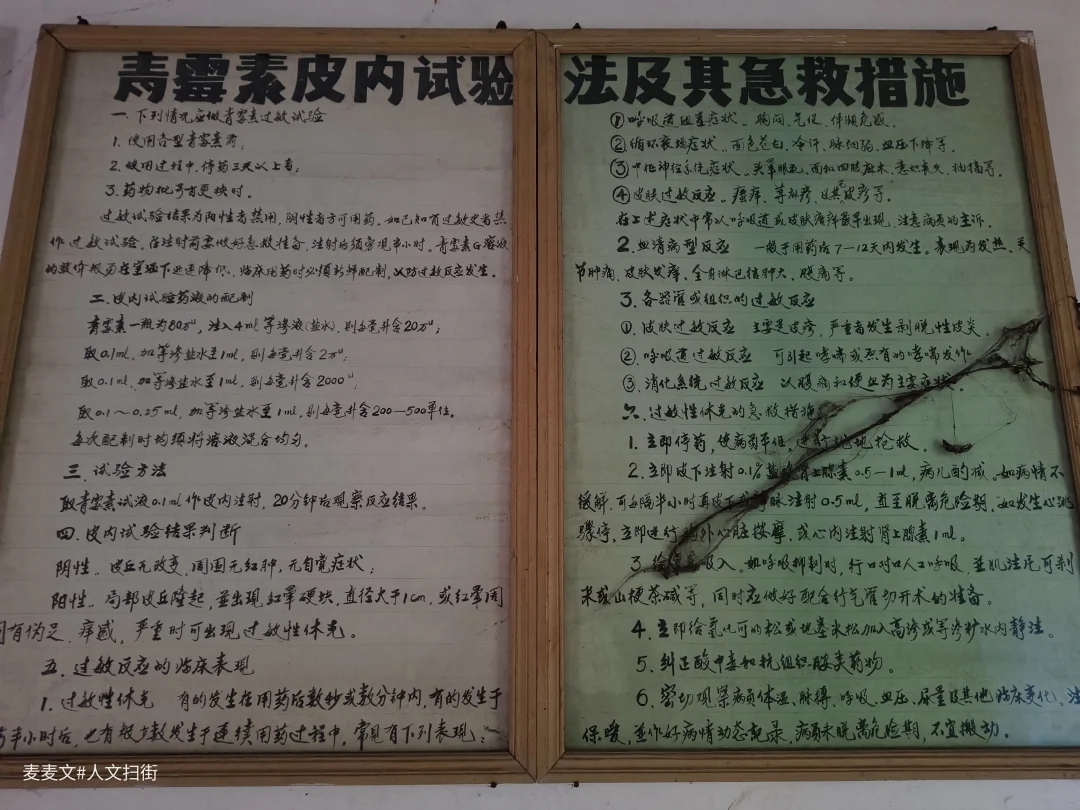 青霉素皮内试验法及其急救措施
一.下列情况应做青霉素过敏试验
1.使用各型青霉素前,
2.使用过程中,停药三天以上者;
3.药物批号有更换时.
过敏试验结果为阳性者禁用,阴性者方可用药。如已知有过敏史者禁
作过敏试验。在注射前要做好急救准备,注射后须等观半小时。青霉素G溶液
的效价极易在室温下迅速降低,临床用药时必须新鲜配制,以防过敏反应发生。
二.皮内试验药液的配制
青霉素一瓶为80万u,注入4ml等渗液(盐水),则每毫升含20万u;
取0.1ml,加等渗盐水至1ml,则每毫升含2万u;
取0.1ml,加等渗盐水至1ml,则每毫升含2000u;
取0.1~0.25ml,加等渗盐水至1ml,则每毫升含200—500单位。
每次配制时均须将溶液混合均匀。
三.试验方法
取青霉素试液0.1ml作皮内注射,20分钟后观察反应结果。
四.皮内试验结果判断
阴性.皮丘无改变,周围无红肿,无自觉症状;
阳性.局部皮丘隆起,並出现红晕硬块,直径大于1cm,或红晕周
围有伪足,痒感,严重时可出现过敏性休克。
五.过敏反应的临床表现
1.过敏性休克 有的发生在用药后数秒或数分钟内,有的发生于
半小时后,也有极少数发生于连续用药过程中,常见有下列表现:
①呼吸道阻塞症状.胸闷.气促.伴濒危感.
②循环衰竭症状.面色苍白,冷汗.脉细弱.血压下降等.
③中枢神经系统症状.头晕眼花.面和四肢麻木.意识丧失.抽搐等.
④皮肤过敏反应.瘙痒.荨麻疹.及其皮疹等.
在上述症状中常以呼吸道或皮肤瘙痒最早出现,注意病员的主诉.
2.血清病型反应 一般于用药后7—12天内发生.表现为发热.关
节肿痛.皮肤发痒.全身淋巴结肿大.腹痛等.
3.各器官或组织的过敏反应
①.皮肤过敏反应 主要是皮疹,严重者发生剥脱性皮炎.
②.呼吸道过敏反应 可引起哮喘或原有的哮喘发作
③.消化系统过敏反应 以腹痛和便血为主要症状.
六.过敏性休克的急救措施
1.立即停药,使病员平卧,进行就地抢救.
2.立即皮下注射0.1%盐酸肾上腺素0.5—1ml,病儿酌减.如病情不
缓解,可每隔半小时再皮下或静脉注射0.5ml,直至脱离危险期.如发生心跳
骤停,立即进行胸外心脏按摩,或心内注射肾上腺素1ml.
3.给氧气吸入.如呼吸抑制时,行口对口人工呼吸,並肌注尼可刹
米或山梗茶碱等,同时应做好配合作气管切开术的准备。
4.立即给氢化可的松或地塞米松加入高渗或等渗糖水内静注。
5.纠正酸中毒和抗组织胺类药物.
6.密切观察病员体温.脉搏.呼吸.血压.尿量及其他临床变化,注
保暖,並作好病情动态记录,病员未脱离危险期,不宜搬动.
麦麦文#人文扫街